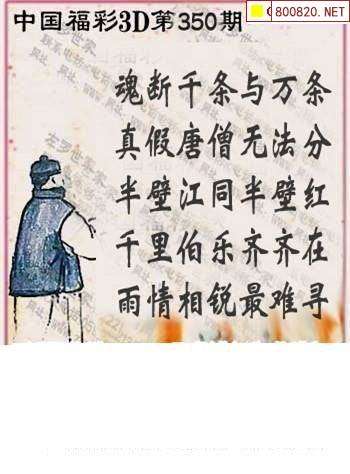 中国福彩3D第350期
800820.NET
魂断千条与万条
真假唐僧无法分
半壁江同半壁红
千里伯乐齐齐在
雨情相锐最难寻